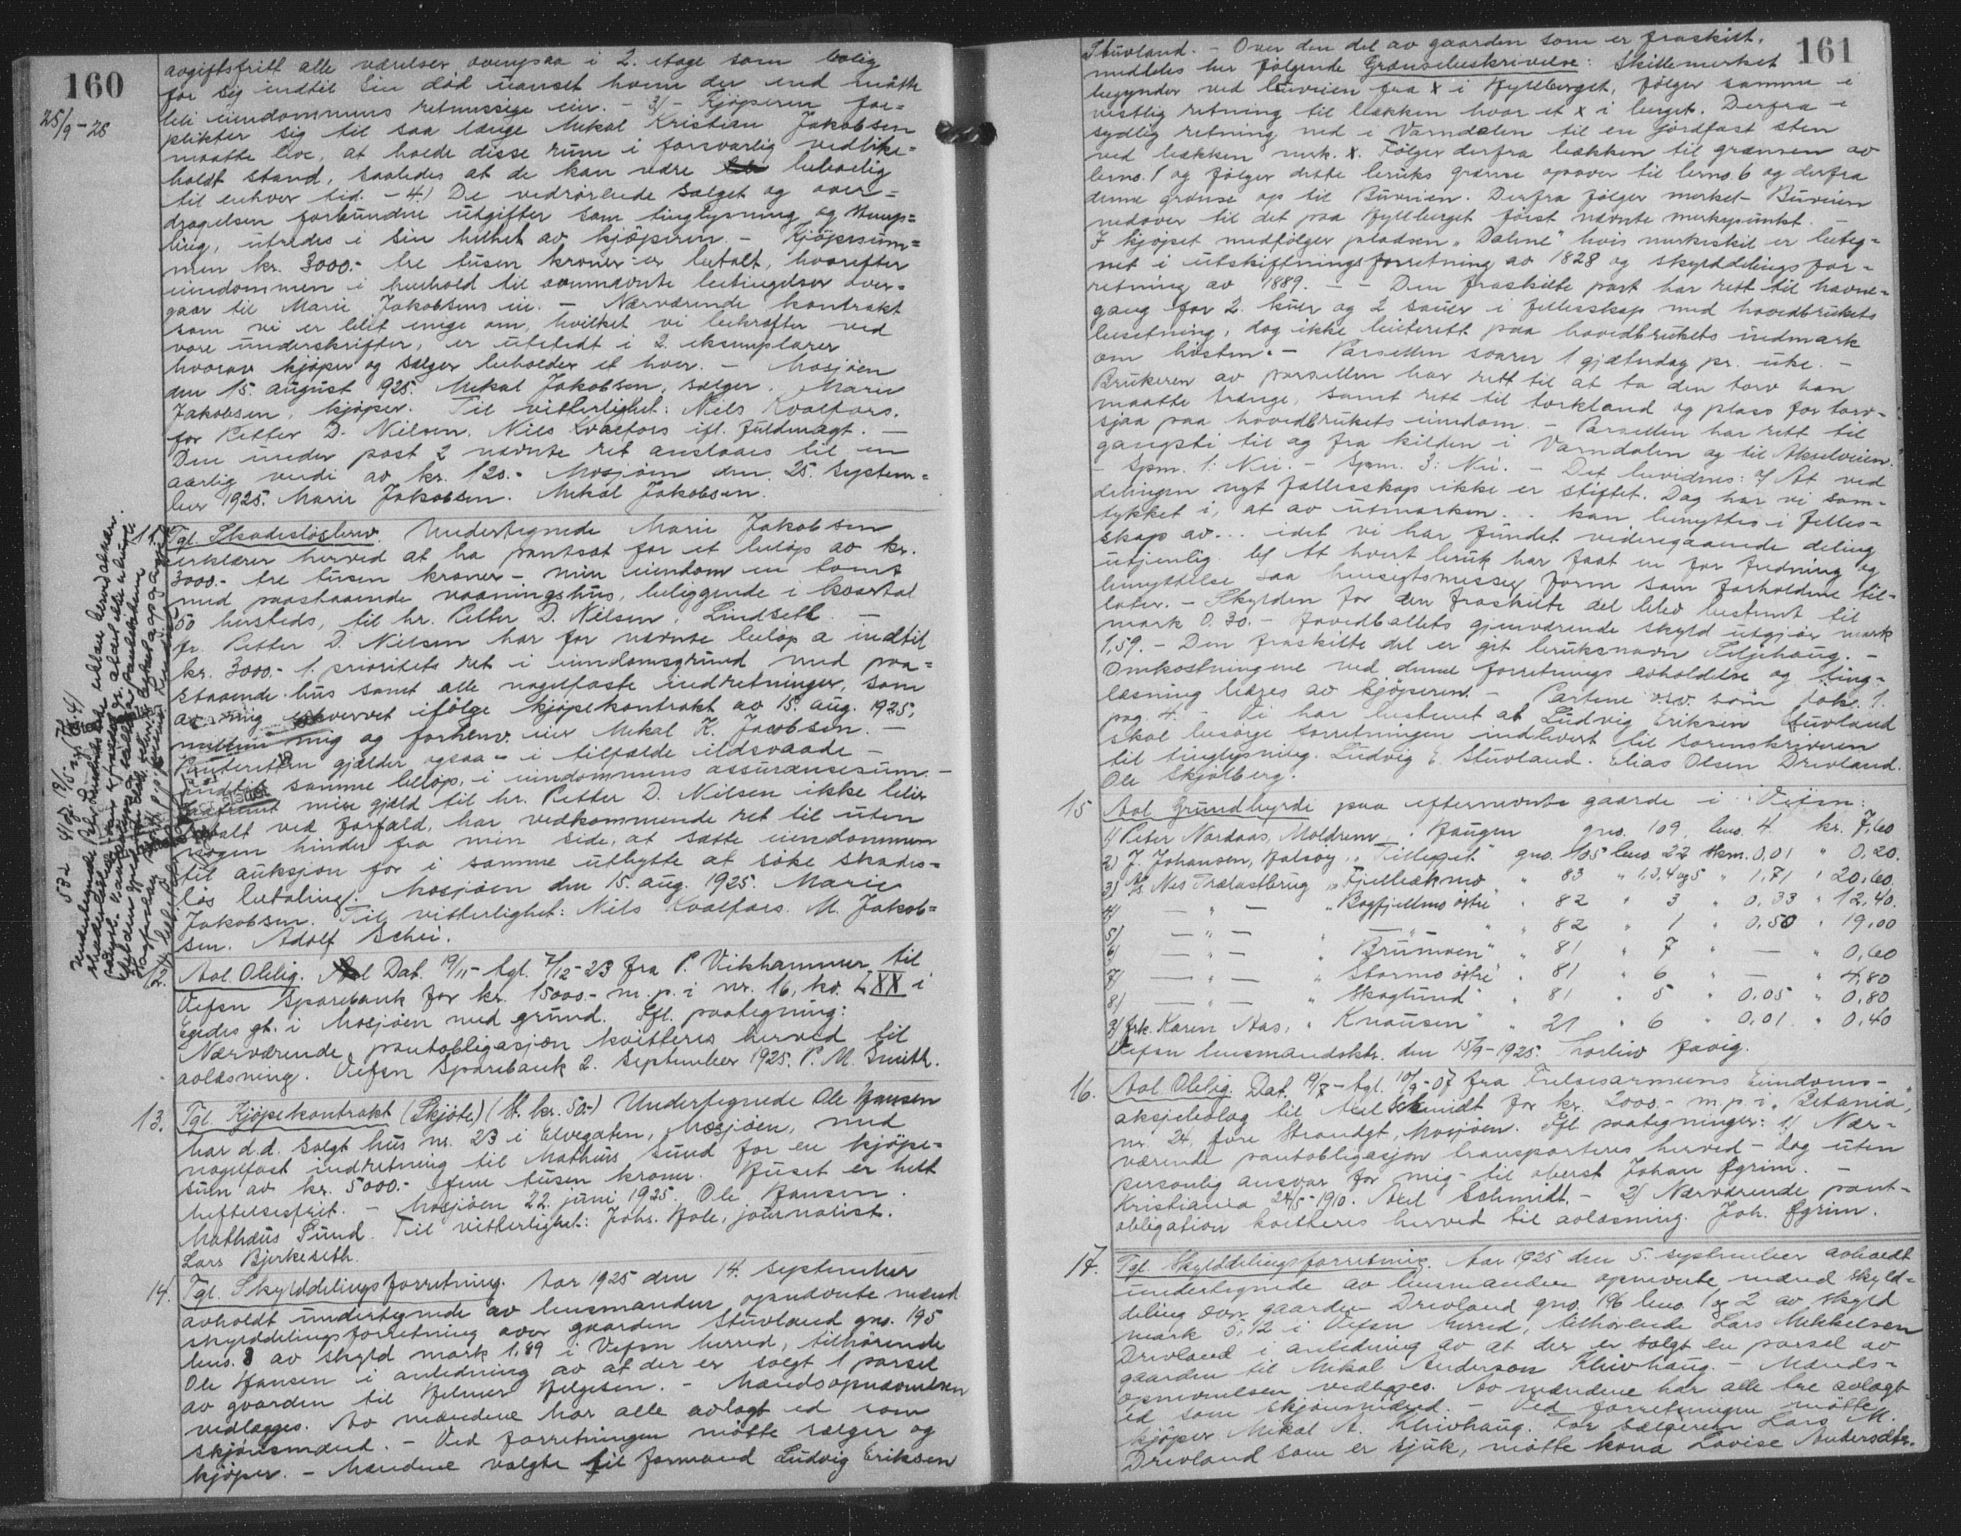 160
25/9-25
avgiftsfritt alle værelser ovenpaa i 2. etage som bolig
for sig indtil sin død uanset hvem der end måtte
bli eiendommens retmessige eier. - 3/ - Kjøperen for=
plikter sig til saa længe Mekal Kristian Jakobsen
maatte leve, at holde disse rum i forsvarlig vedlike=
holdt stand, saaledes at de kan være beboelig
til enhver tid. - 4) De vedrørende salget og over=
dragelsen forbundne utgifter som tinglysning og stemp=
ling, utredes i sin helhet av kjøperen. - Kjøpesum=
men kr. 3000.- tre tusen kroner - er betalt, hvorefter
eiendommen i henhold til ovennævnte betingelser over=
gaar til Marie Jakobsens eie. - Nærværende kontrakt
som vi er blit enige om, hvilket vi bekrefter ved
vore underskrifter, er utstedt i 2 eksemplarer
hvorav kjøper og sælger beholder et hver. - Mosjøen
den 15. august 1925. Mekal Jakobsen, sælger. Marie
Jakobsen, kjøper. Til vitterlighet: Niels Kvalfors.
for Petter D. Nilsen. Niels Kvalfors ifl. fuldmagt. -
Den under post 2 nævnte ret anslaaes til en
aarlig verdi av kr. 120.- Mosjøen den 25. septem=
ber 1925. Marie Jakobsen. Mekal Jakobsen.
11. Tgl. Skadesløsbrev. Undertegnede Marie Jakobsen
erklærer herved at ha pantsat for et beløp av kr.
3000.- tre tusen kroner - min eiendom en tomt
med paastaaende vaaningshus, beliggende i kvartal
50 hersteds, til hr. Petter D. Nilsen, Lindseth. -
hr. Petter D. Nilsen har for nævnte beløp a indtil
kr. 3000.- 1. prioritets ret i eiendomsgrund med paa=
staaende hus samt alle nagelfaste indretninger, som
av mig erhvervet ifølge kjøpekontrakt av 15. aug. 1925,
mellem mig og forhenv. eier Mekal K. Jacobsen. -
Panteretten gjælder ogsaa - i tilfælde ildsvaade -
indtil samme beløp, i eiendommens assurancesum. -
Saafremt min gjæld til hr. Petter D. Nilsen ikke blir
betalt ved forfald, har vedkommende ret til uten
nogen hinder fra min side, at sætte eiendommen
til auksjon for i samme utbytte at søke skades=
løs betaling. Mosjøen den 15. aug. 1925. Marie
Jakobsen. Til vitterlighet: Niels Kvalfors. M. Jakob=
sen. Adolf Schei.
12. Avl. Oblig. Dat. 19/11 - tgl. 7/12-23 fra P. Vikhammer til
Vefsn Sparebank for kr. 15000.- m. p. i nr. 16, kv. LXX i
Egedes gt. i Mosjøen med grund. Ifl. paategning:
Nærværende pantobligasjon kvitteres herved til
avlæsning. Vefsn Sparebank 2. september 1925. P. M. Smith.
13. Tgl. Kjøpekontrakt (Skjøte) (St. kr. 50.-) Undertegnede Ole Hansen
har d.d. solgt hus nr. 23 i Elvegaten, Mosjøen, med
nagelfast indretning til Mathæus Sund for en kjøpe=
sum av kr. 5000.- fem tusen kroner. Huset er helt
heftelsesfrit. - Mosjøen 22. juni 1925. Ole Hansen.
Mathæus Sund. Til vitterlighet: Johs. Hole, journalist.
Lars Bjerkeseth.
14. Tgl. Skylddelingsforretning. Aar 1925 den 14. september
avholdt undertegnede av lensmanden opnævnte mænd
skylddelingsforretning over gaarden Stuvland gno. 195
bno. 3 av skyld mark 1,89 i Vefsn herred, tilhørende
Ole Hansen i anledning av at der er solgt 1 parsel
av gaarden til Helmer Helgesen. - Mandsopnævnelsen
vedlægges. Av mændene har alle avlagt ed som
skjønsmænd. - Ved forretningen møtte sælger og
kjøper. - Mændene valgte til formand Ludvig Eriksen
161
Stuvland. - Over den del av gaarden som er fraskilt,
meddeles her følgende Grænsebeskrivelse: Skillemerket
begynder ved Buveien fra x i Hyllberget, følger samme i
vestlig retning til bækken hvor et x i berget. Derfra i
sydlig retning ned i Varndalen til en jordfast sten
ved bækken merk. x. Følger derfra bækken til grænsen av
bno. 1 og følger dette bruks grænse opover til bno. 6 og derfra
denne grænse op til Buveien. Derfra følger merket Buveien
nedover til det paa Hyllberget først nævnte merkepunkt. -
I kjøpet medfølger pladsen "Dalene" hvis merkeskil er beteg=
net i utskiftningsforretning av 1828 og skylddelingsfor=
retning av 1889. - - Den fraskilte part har rett til havne=
gang for 2 kuer og 2 sauer i fellesskap med hovedbrukets
besetning, dog ikke beiterett paa hovedbrukets indmark
om høsten. - Parsellen svarer 1 gjæterdag pr. uke. -
Brukeren av parsellen har rett til at ta den torv han
maatte trænge, samt rett til torkland og plass for torv-
sjaa paa hovedbrukets eiendom. - Parsellen har rett til
gangsti til og fra kilden i Varndalen og til Akselveien.
- Spm. 1: Nei. - Spm. 3: Nei. - Det bevidnes: a/ At ved
delingen nyt fællesskap ikke er stiftet. Dog har vi sam=
tykket i, at av utmarken... kan benyttes i felles=
skap av... idet vi har fundet videregaaende deling
utjenlig. b/ At hvert bruk har faat en for fredning og
benyttelse saa hensigtsmessig form som forholdene til=
later. - Skylden for den fraskilte del blev bestemt til
mark 0.30. - Hovedbøllets gjenværende skyld utgjør mark
1,59. - Den fraskilte del er git bruksnavn Liljehaug. -
Omkostningene ved denne forretnings avholdelse og ting=
læsning bæres av kjøperen. - Partene o.s.v. som dok. 1.
pag. 4. - Vi har bestemt at Ludvig Eriksen Stuvland
skal besørge forretningen indlevert til sorenskriveren
til tinglysning. Ludvig E. Stuvland. Elias Olsen Drevland.
Ole Skjølberg.
15 Avl. Grundbyrde paa efternævnte gaarde i Vefsn:
1) Peter Nordaas, Moldrem, i Haugen gno. 109, bno. 4. kr. 7,60
2) J. Johansen, Halsøy, "Tillegget" gno. 105 bno. 22 skm. 0,01 " 0,20.
3) A/s. Nes Trælastbrug, "Fjellbækmo " 83 " 1,3,4 og 5 " 1,71 " 20,60.
4) — " — "Bagfjellmo østre " 82 " 3 " 0,33 " 12,40.
5) — " — " — " — " 82 " 1 " 0,50 " 19,00
6) — " — " Brumoen" " 81 " 7 " — " 0,60
7) — " — " Stormo østre" " 81 " 6 " — " 4,80
8) — " — " Skoglund" " 81 " 5 " 0,05 " 0,80
9) frk. Karen Aas, " Knausen" " 21 " 6 " 0,01 " 0,40
Vefsn lensmandsktr. den 15/9-1925. Thorleiv Havig.
16. Avl. Oblig. Dat. 19/7 - tgl. 10/9-07 fra Frelsesarmeens Eiendoms-
aksjebolag til Axel Schmidt for kr. 2000.- m. p. i "Betania",
nr. 24, søre Strandgt., Mosjøen. Ifl. paategninger: 1) Nær-
værende pantobligasjon transporteres herved - dog uten
personlig ansvar for mig - til oberst Johan Øgrim. -
Kristiania 24/5-1910. Axel Schmidt. - 2) Nærværende pant-
obligation kvitteres herved til avlæsning. Joh. Øgrim.
17. Tgl. Skylddelingsforretning. Aar 1925 den 5. september avholdt
undertegnede av lensmanden opnævnte mænd skyld=
deling over gaarden Drevland gno. 196 bno. 1 og 2 av skyld
mark 5,12 i Vefsn herred, tilhørende Lars Mekkelsen
Drevland i anledning av at der er solgt en parsel av
gaarden til Mikal Anderson Kleivhaug. - Mands-
opnevnelsen vedlegges. Av mændene har alle tre avlagt
ed som skjønsmænd. - Ved forretningen møtte
kjøper Mikal A. Kleivhaug. For sælgeren Lars M.
Drevland som er sjuk, møtte kona Lovise Andersdtr.